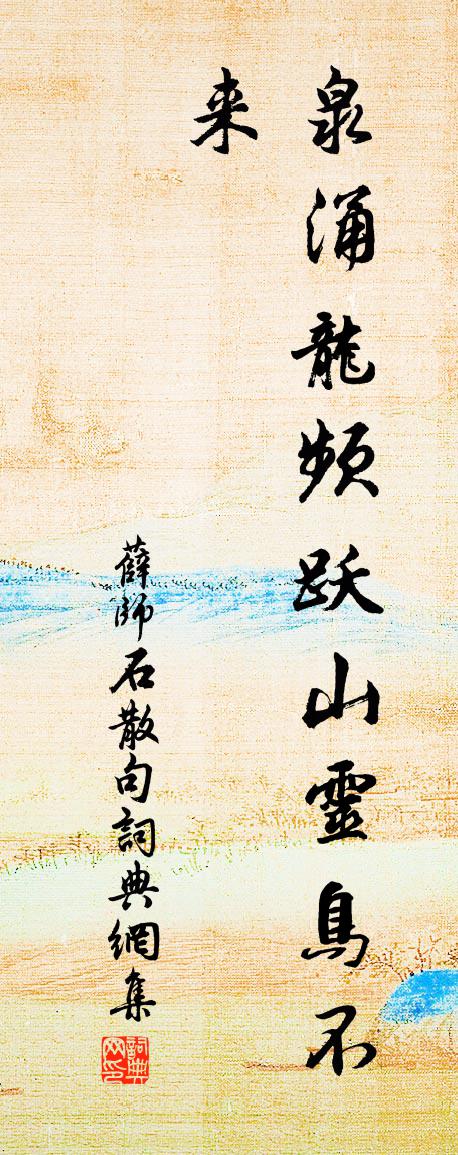 泉涌龍頻跃山靈鳥不
来
薛師石散句詞典網集
詞典网印